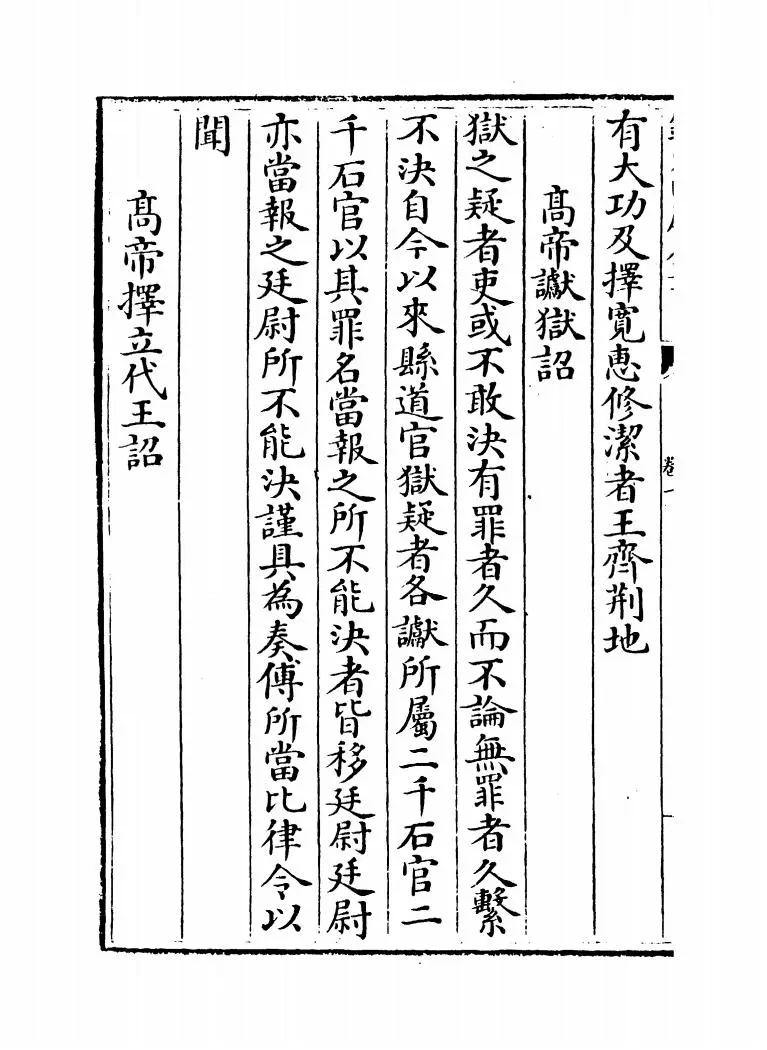 有大功及擇寛恵修潔者王齊荆地
髙帝讞獄詔
獄之疑者吏或不敢決有罪者久而不論無罪者久繫
不決自今以來縣道官獄疑者各讞所屬二千石官二
千石官以其罪名當報之所不能決者皆移廷尉廷尉
亦當報之廷尉所不能決謹具為奏傅所當比律令以
聞
髙帝擇立代王詔